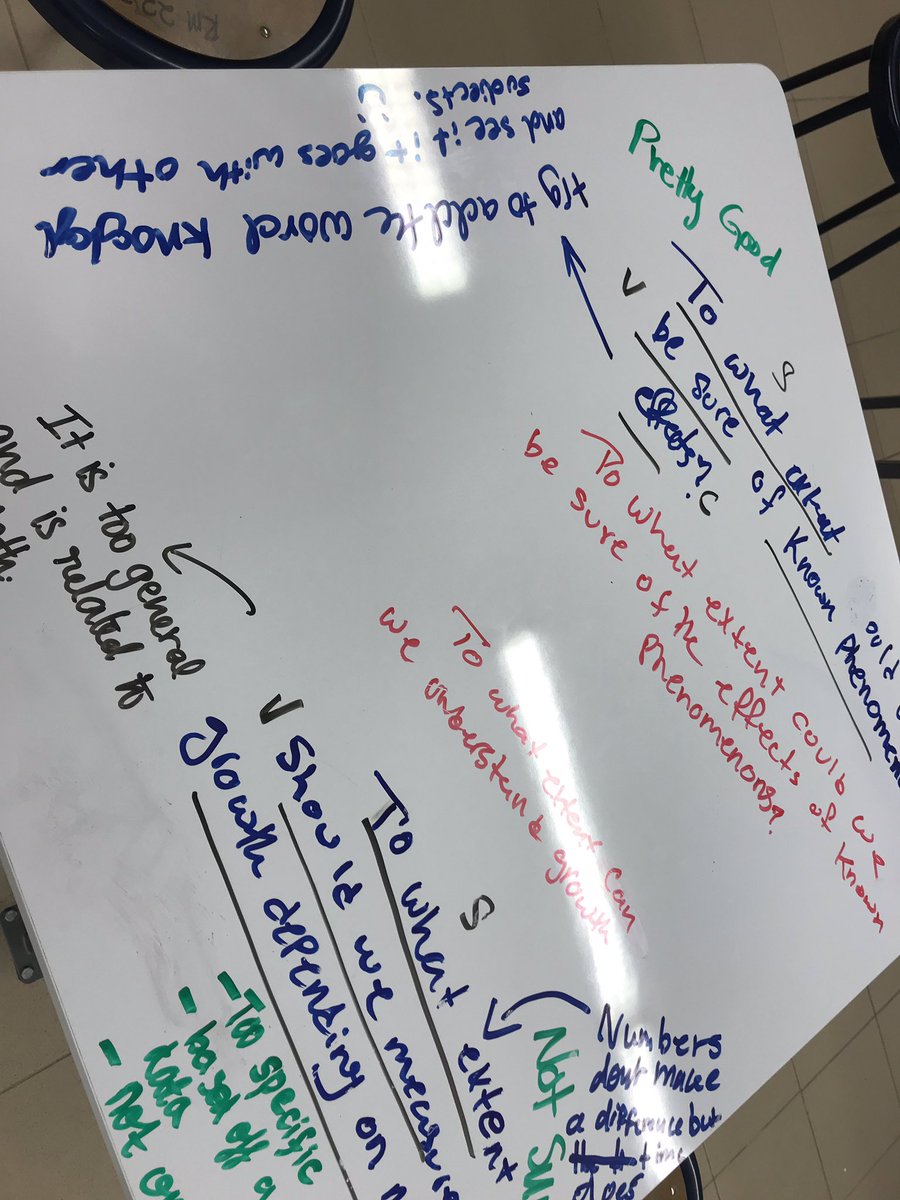 RM
try to add the word
and see if it goes with other
subjects. :)
Pretty Good
To what extent
ould
be sure of known phenomen
V
S
effects?
C
To what extent could we
be sure of the effects of known
phenomenons?
To what extent can
we understand growth
It is too general
and is related to
V
S
To what extent
Should we measure
growth depending on
- Too specific
- based off a
- Not
Not
Numbers
dont make
a difference but
time
does